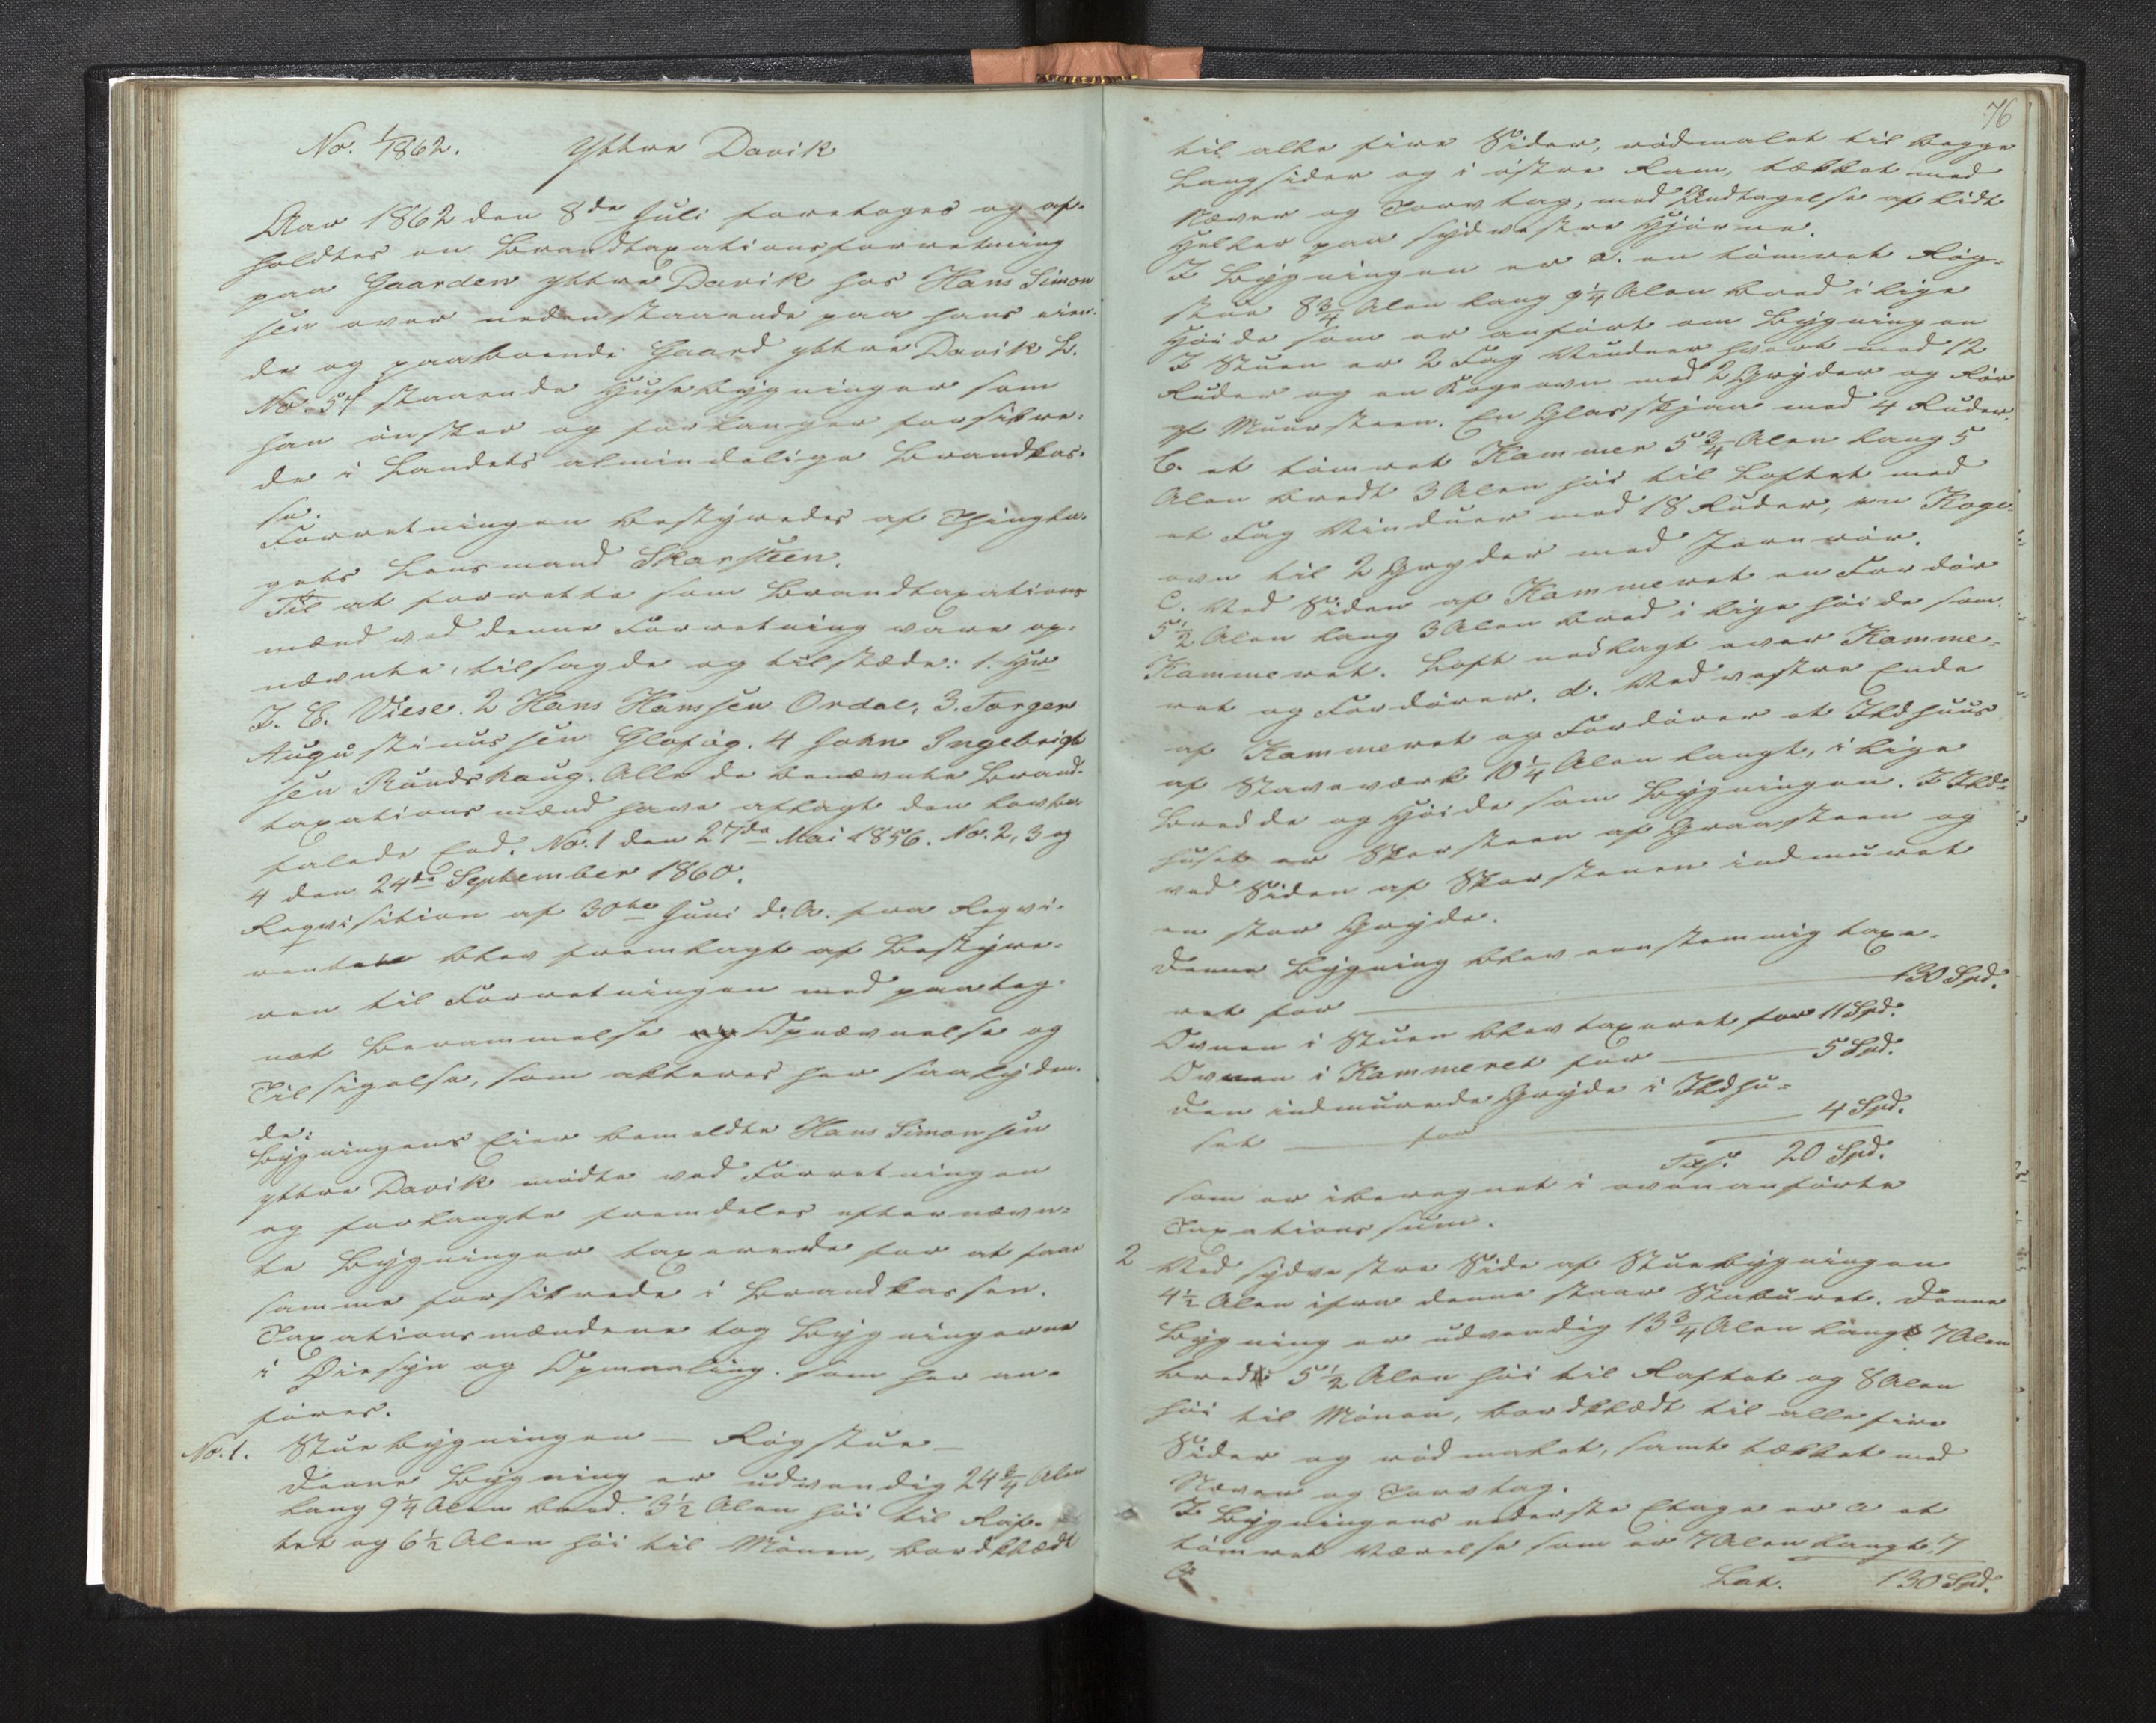 No. 1/1862. Yttre Davik
Aar 1862 den 8de Juli foretoges og af-
holdtes en Brandtaxationsforretning
paa Gaarden Yttre Davik hos Hans Simon
sen over nedenstaaende paa hans eien-
de og paaboende Gaard Yttre Davik L.
No. 54 staaende Huusebygninger som
han ønsker og forlanger forsikre-
de i Landets almindelige Brandkas-
se.
Forretningen bestyredes af Thingla-
gets Lensmand Skarsteen.
Til at forrette som Brandtaxations
mænd ved denne Forretning vare op-
nævnte, tilsagde og tilstæde: 1. Hr
J. E. Viese. 2 Hans Hanssen Ordal, 3. Torger
Augustinussen Gloføg. 4 John Ingebrigt
sen Rundskaug. Alle de benævnte Brand-
taxationsmænd have aflagt den lovbe-
falede Eed. No. 1 den 27de Mai 1856. No. 2, 3 og
4 den 24de September 1860.
Reqvisition af 30te Juni d. A. fra Reqvi-
renten blev fremlagt af Bestyre-
ren til Forretningen med paateg-
net Berammelse og Opnævnelse og
Tilsigelse, som akteres her saalyden-
de:
Bygningens Eier bemeldte Hans Simonsen
Yttre Davik mødte ved Forretningen
og forlangte fremdeles efternævn-
te Bygninger taxerede for at faae
samme forsikrede i Brandkassen.
Taxationsmændene tog Bygningerne
i Øiesyn og Opmaaling. som her an-
føres.
No. 1. Stuebygningen — Røgstue —
Denne Bygning er udvendig 24 3/4 Alen
lang 9 1/4 Alen bred. 3 1/2 Alen høi til Raf-
tet og 6 1/2 Alen høi til Mønen, bordklædt
76
til alle fire Sider, rødmalet til begge
Langsider og i østre Ram, tækket med
Næver og Torvtag, med Undtagelse af lidt
Heller paa sydvestre Hjørne.
I Bygningen er a. en tømret Røg-
stue 8 3/4 Alen lang 9 1/4 Alen bred i lige
Høide som er anført om Bygningen
I Stuen er 2 Fag Vinduer hvert med 12
Ruder og en Kogeovn med 2 Gryder og Rør
af Muursteen. En Glasskjaa med 4 Ruder.
b. et tømret Kammer 5 3/4 Alen lang 5
Alen bredt 3 Alen høi til Loftet med
et Fag Vinduer med 18 Ruder, en Koge-
ovn til 2 Gryder med Jernrør.
c. Ved Siden af Kammeret en Fordør
5 1/2 Alen lang 3 Alen bred i lige høide som
Kammeret. Loft nedlagt over Kamme-
ret og Fordøren. d. Ved vestre Ende
af Kammeret og Fordøren et Ildhuus
af Staveværk 10 1/4 Alen langt, i lige
Bredde og Høide som Bygningen. I Ild-
huset er Skorsteen af Graasteen og
ved Siden af Skorstenen indmuret
en stor Gryde.
Denne Bygning blev eenstemmig taxe-
ret for — 130 Spd.
Ovnen i Stuen blev taxeret for 11 Spd.
Ovnen i Kammeret for — 5 Spd.
Den indmurede Gryde i Ildhu-
set — for — 4 Spd.
Tils. 20 Spd.
som er iberegnet i ovenanførte
Taxationssum.
2 Ved sydvestre Side af Stuebygningen
4 1/2 Alen ifra denne staar Staburet. Denne
Bygning er udvendig 13 3/4 Alen lang 7 Alen
bred 5 1/2 Alen høi til Raftet og 8 Alen
høi til Mønen, bordklædt til alle fire
Sider og rødmalet, samt tækket med
Næver og Torvtag.
I Bygningens nederste Etage er a et
tømret Værelse som er 7 Alen langt, 7
Lat. 130 Spd.